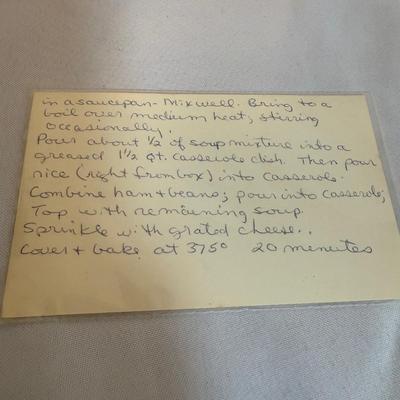 in a saucepan - Mix well. Bring to a
boil over medium heat, stirring
occasionally.
Pour about 1/2 of soup mixture into a
greased 1 1/2 qt. casserole dish. Then pour
rice (right from box) into casserole.
Combine ham + beans; pour into casserole;
Top with remaining soup.
Sprinkle with grated cheese..
Cover + bake at 375° 20 menutes